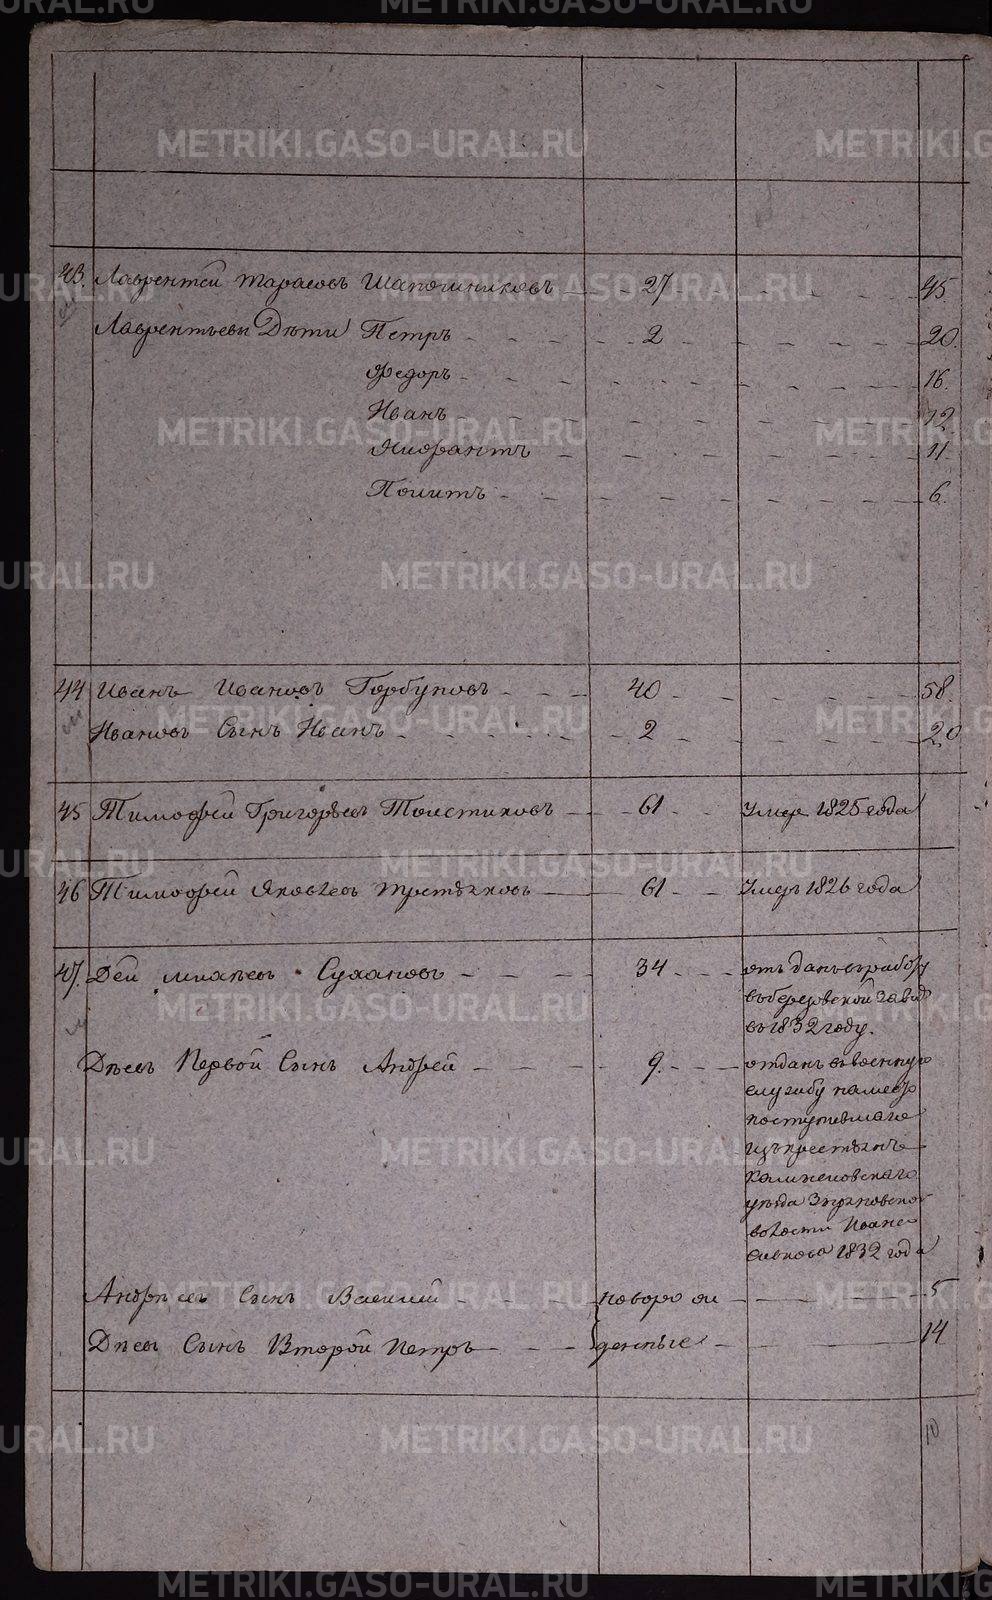 43. Лаврентей Тарасовъ Шапошниковъ 27 45
Лаврентьевы Дѣти Петръ 2 20.
Федоръ 16.
Иванъ 12
11
6.
44 Иванъ Ивановъ Горбуновъ 40 58.
Ивановъ Сынъ Иванъ 2 20
45 Тимофей Григорьевъ Толстиковъ 61 умер 1825 года
46 Тимофей Яковлевъ Третьяковъ 61 умеръ 1826 года
47. Дей Михѣевъ Сухановъ 34
въ березовской завод
въ 1832 году.
Дѣевъ Первой Сынъ Андрей 9. отданъ въ военную
службу
поступившаго
изъ крестьянъ
уѣзда
волости Ивана
1832 года
Андрѣевъ Сынъ Василий новорож 5
Дѣевъ Сынъ Второй Петръ денные 14
10
METRIKI.GASO-URAL.RU